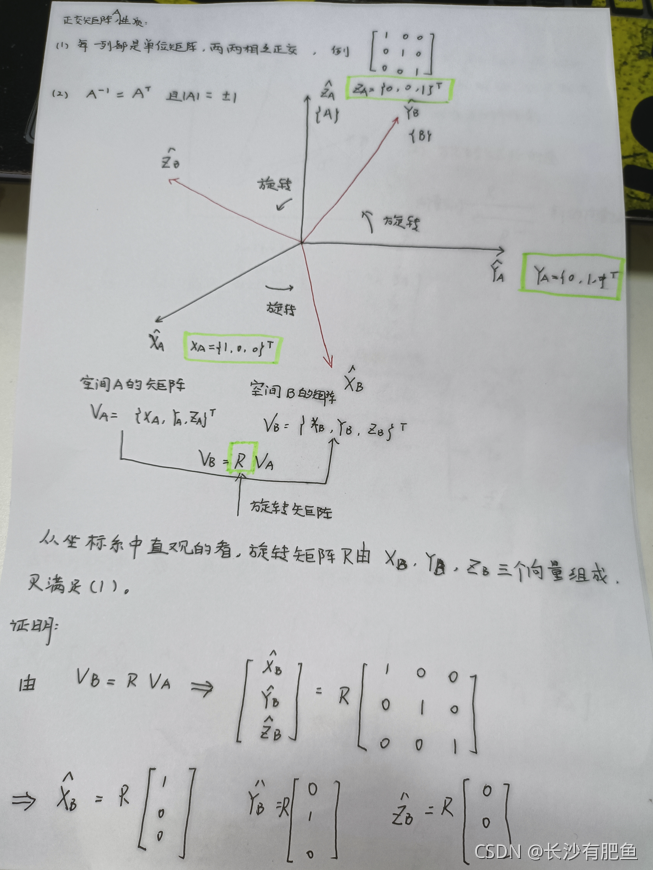 正交矩阵性质:
(1) 每一列都是单位矩阵,两两相互正交,例 [1 0 0; 0 1 0; 0 0 1]
(2) A⁻¹ = Aᵀ 且|A| = ±1
Ẑ_A Z_A={0,0,1}ᵀ
{A}
Ŷ_B
{B}
Ẑ_B
旋转
旋转
Ŷ_A Y_A={0,1,0}ᵀ
旋转
X̂_A X_A={1,0,0}ᵀ
X̂_B
空间A的矩阵 空间B的矩阵
V_A= {X_A, Y_A, Z_A}ᵀ V_B= {X_B, Y_B, Z_B}ᵀ
V_B = R V_A
旋转矩阵
从坐标系中直观的看,旋转矩阵R由 X_B, Y_B, Z_B 三个向量组成.
又满足(1)。
证明:
由 V_B = R V_A ⇒ [X̂_B; Ŷ_B; Ẑ_B] = R [1 0 0; 0 1 0; 0 0 1]
⇒ X̂_B = R [1; 0; 0] Ŷ_B = R [0; 1; 0] Ẑ_B = R [0; 0; 1]
CSDN @长沙有肥鱼